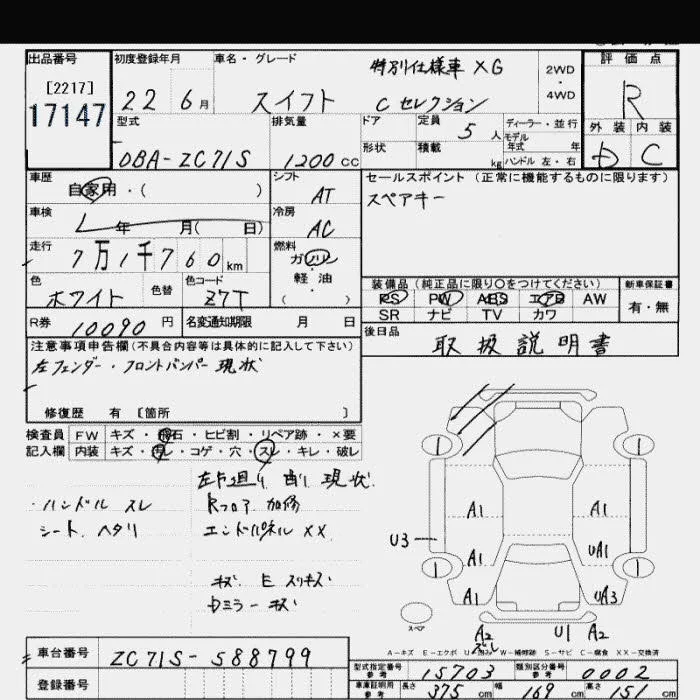 出品番号 初度登録年月 車名・グレード 評価点
[2217]
17147
22 6月 スイフト 特別仕様車 XG Cセレクション 2WD・4WD R
外装 内装
D C
型式 DBA-ZC71S 排気量 1200cc
ドア 定員 5人 ディーラー・並行
形状 積載 kg モデル年式 年 ハンドル 左・右
車歴 自家用・( ) シフト AT
セールスポイント (正常に機能するものに限ります)
スペアキー
車検 年 月( 日) 冷房 AC
走行 7万1千760km 燃料 ガソリン・軽油 ( )
色 ホワイト 色替 色コード Z7T
装備品(純正品に限り○をつけてください) 新車保証書
PS PW ABS エアB AW 有・無
SR ナビ TV カワ
R券 10090円 名変通知期限 月 日
後日品 取扱説明書
注意事項申告欄(不具合内容等は具体的に記入して下さい)
左フェンダー・フロントバンパー現状
修復歴 有 [箇所 ]
検査員 FW キズ・飛石・ヒビ割・リペア跡・×要
記入欄 内装 キズ・汚レ・コゲ・穴・スレ・キレ・破レ
左右廻り 曲り 現状.
・ハンドル スレ Rフロア 加修
シート.ヘタリ エンドパネル XX.
キズ. E スリキズ
Dミラーキズ
1 1
A1 A1
U3 A1 UA1
1 1
A1 UA3
スペア A2 ズレ U1 A2
A−キズ E−エクボ U−凹み W−補修跡 S−サビ C−腐食 XX−交換済
車台番号 ZC71S-588799
登録番号
型式指定番号 参考 15703 類別区分番号 参考 0002
車庫証明用 参考 長さ 375cm 幅 169cm 高さ 151cm